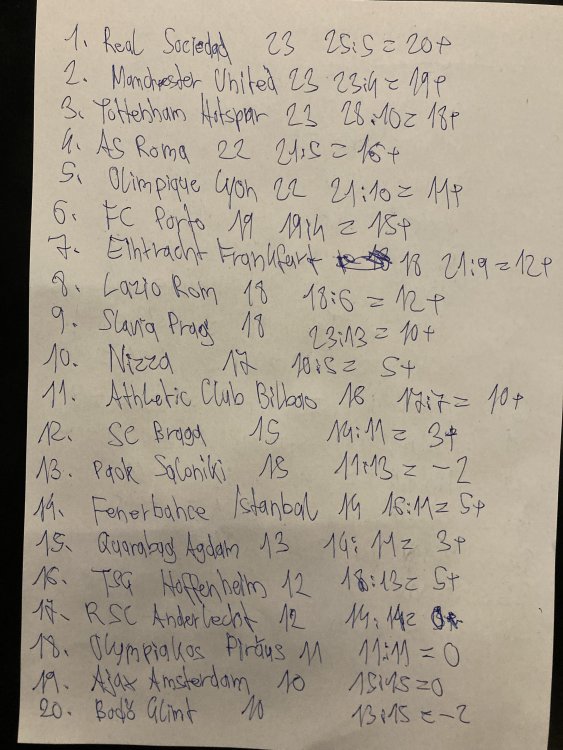 1. Real Sociedad 23 25:5 = 20+
2. Manchester United 23 23:4 = 19+
3. Tottenham Hotspur 23 28:10 = 18+
4. AS Roma 22 21:5 = 16+
5. Olimpique Lyon 22 21:10 = 11+
6. FC Porto 19 19:4 = 15+
7. Eintracht Frankfurt 18 21:9 = 12+
8. Lazio Rom 18 18:6 = 12+
9. Slavia Prag 18 23:13 = 10+
10. Nizza 17 10:5 = 5+
11. Athletic Club Bilbao 16 17:7 = 10+
12. SC Braga 15 14:11 = 3+
13. Paok Saloniki 15 11:13 = -2
14. Fenerbahce Istanbal 14 16:11 = 5+
15. Quarabag Agdam 13 14:11 = 3+
16. TSG Hoffenheim 12 18:13 = 5+
17. RSC Anderlecht 12 14:14 = 0
18. Olympiakos Piräus 11 11:11 = 0
19. Ajax Amsterdam 10 15:15 = 0
20. Bodö Glint 10 13:15 = -2